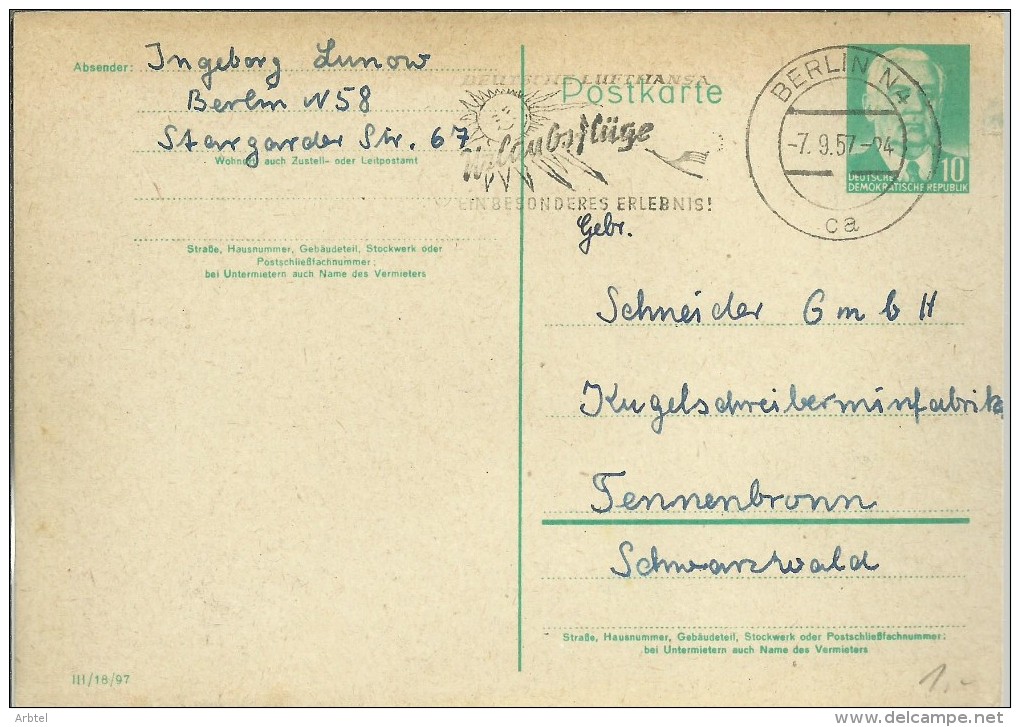 Absender: Ingeborg Lunow
Berlin N58
Stargarder Str. 67.
Wohnort, auch Zustell- oder Leitpostamt
Straße, Hausnummer, Gebäudeteil, Stockwerk oder
Postschließfachnummer;
bei Untermietern auch Name des Vermieters
III/18/97
Postkarte
DEUTSCHE LUFTHANSA
Urlaubsflüge
EIN BESONDERES ERLEBNIS!
BERLIN N4
-7. 9.57-24
ca
10
DEUTSCHE
DEMOKRATISCHE REPUBLIK
Gebr.
Schneider GmbH
Kugelschreiberminfabrik
Tennenbronn
Schwarzwald
Straße, Hausnummer, Gebäudeteil, Stockwerk oder Postschließfachnummer;
bei Untermietern auch Name des Vermieters
1.-
Arbtel
delcampe.net